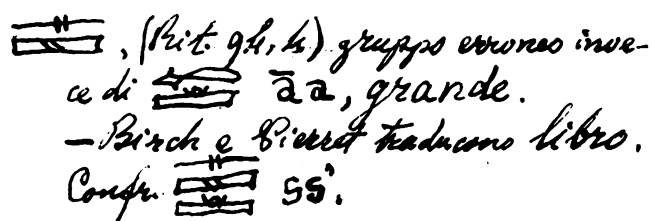 , (Rit. 98, h) gruppo erroneo inve-
ce di āa, grande.
— Birch e Pierret traducono libro.
Confr. SS'.